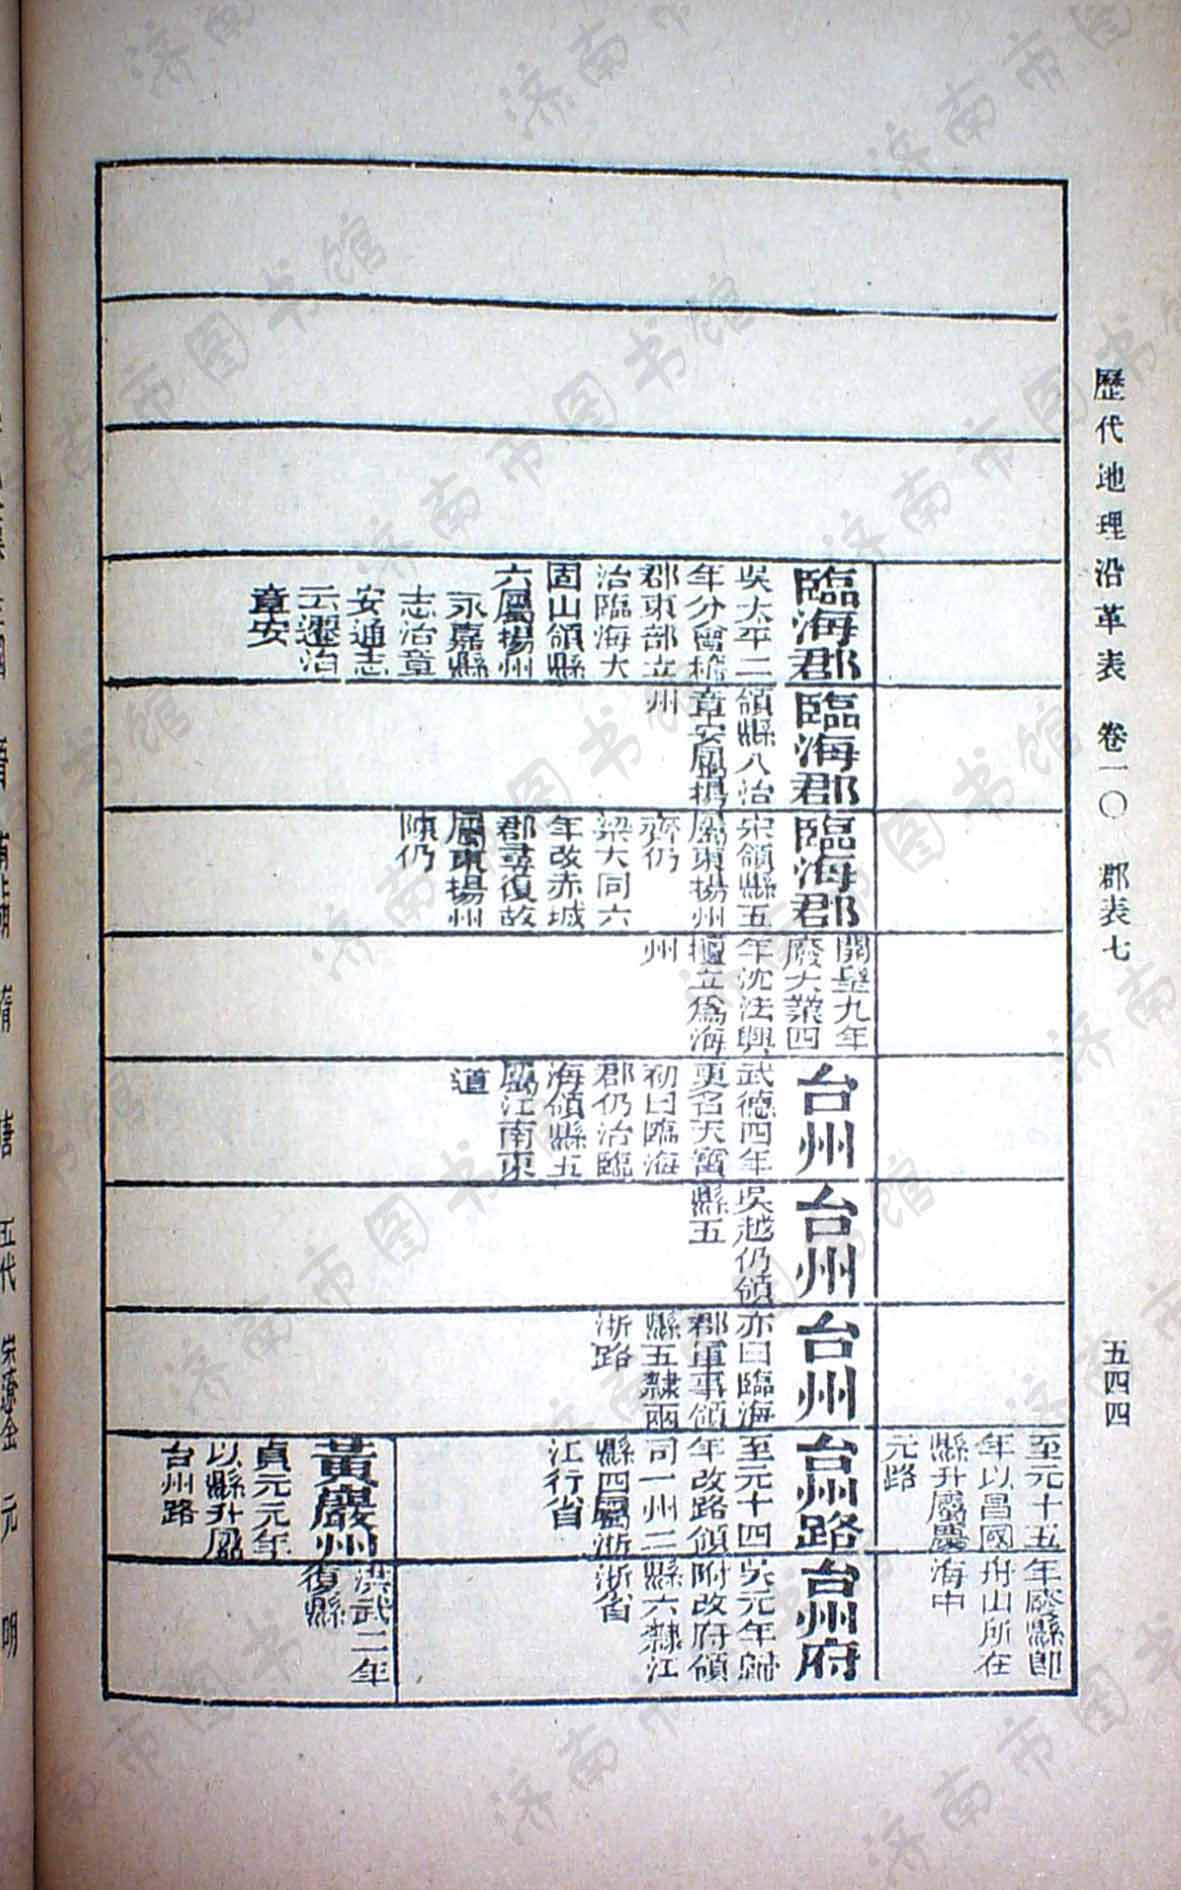 歷代地理沿革表　卷一〇　郡表七
五四四
至元十五
年以昌國
縣升屬慶
元路
年廢縣卽
舟山所在
海中
臨海郡
吳太平二
年分會稽
郡東部立
治臨海大
固山領縣
六屬揚州
永嘉縣
志治章
安通志
云遷治
章安
臨海郡
領縣八治
章安屬揚
州
臨海郡
宋領縣五
屬東揚州
齊仍
梁大同六
年改赤城
郡尋復故
屬東揚州
陳仍
開皇九年
廢大業四
年沈法興
擅立爲海
州
台州
武德四年
更名天寶
初曰臨海
郡仍治臨
海領縣五
屬江南東
道
台州
吳越仍領
縣五
台州
亦曰臨海
郡軍事領
縣五隸兩
浙路
台州路
至元十四
年改路領
司一州二
縣四屬浙
江行省
台州府
吳元年歸
附改府領
縣六隸江
浙省
黃巖州
貞元元年
以縣升屬
台州路
洪武二年
復縣
隋
唐
五代
宋遼金
元
明
济南市图书馆